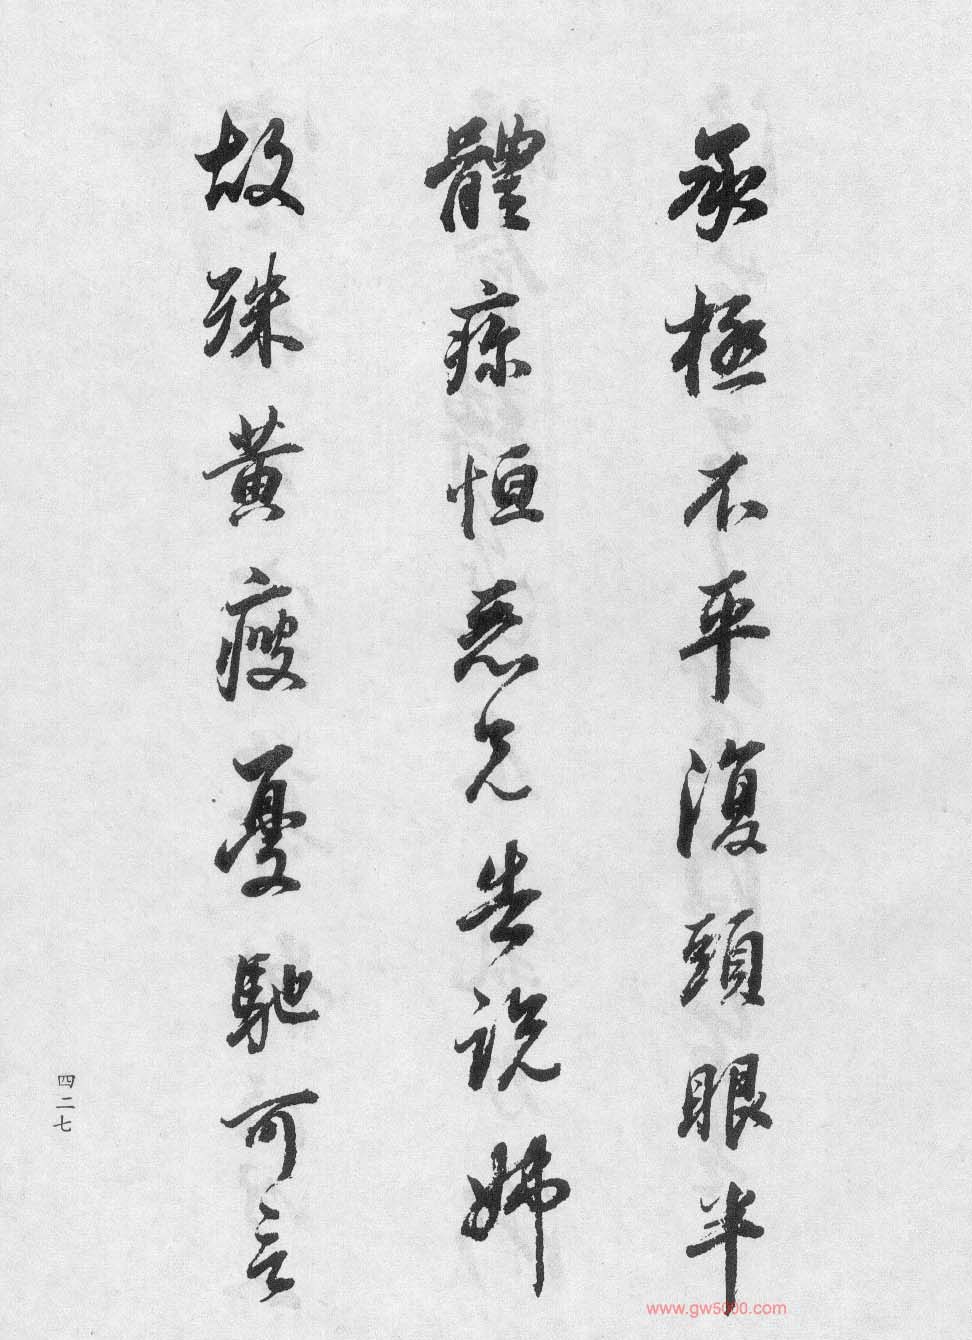 承極不平復頭眼半
體疼恒惡兄告說姊
故殊黃瘦憂馳可言
四二七
www.gw5000.com